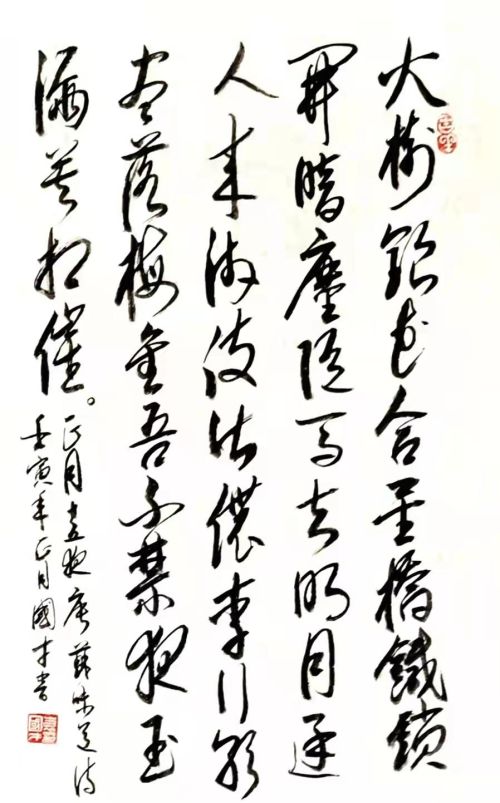 火樹銀花合星橋鐵鎖
開暗塵随馬去明月逐
人来游伎皆穠李行歌
尽落梅金吾不禁夜玉
漏莫相催。
正月十五夜唐蘇味道诗
壬寅年正月國才書